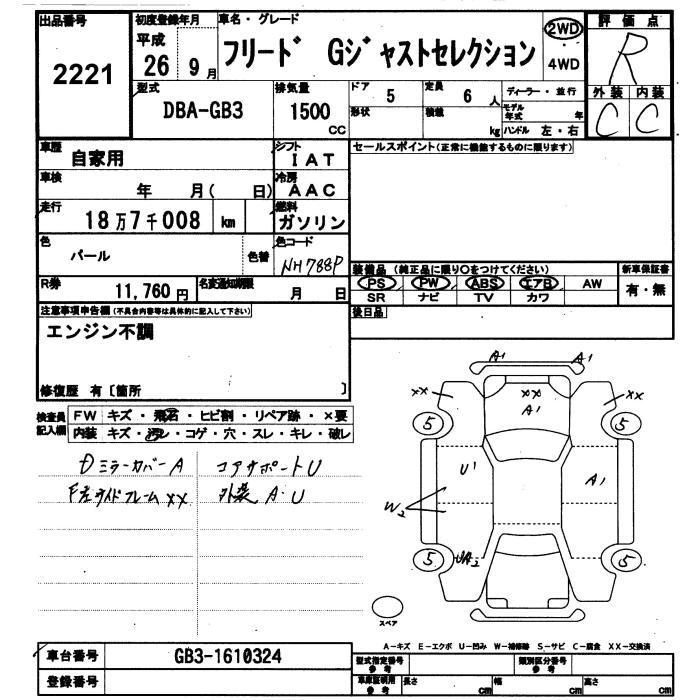 出品番号 初度登録年月 車名・グレード 評価点
2221 平成 26 9月 フリード Gジャストセレクション 2WD・4WD R
型式 DBA-GB3 排気量 1500 CC ドア 5 定員 6人 ディーラー・並行 外装 内装
形状 積載 kg モデル年式 年 C C
ハンドル 左・右
車歴 自家用 シフト IAT セールスポイント(正常に機能するものに限ります)
車検 年 月( 日) 冷房 AAC
走行 18万7千008 km 燃料 ガソリン
色 パール 色替 色コード NH788P 装備品 (純正品に限り○をつけてください) 新車保証書
R券 11,760円 名変通知期限 月 日 PS PW ABS エアB AW 有・無
SR ナビ TV カワ
注意事項申告欄(不具合内容等は具体的に記入して下さい) 後日品
エンジン不調
修復歴 有〔箇所 〕
検査員記入欄 FW キズ・飛石・ヒビ割・リペア跡・×要
内装 キズ・汚レ・コゲ・穴・スレ・キレ・破レ
Dミラーカバー A コアサポートU
F左サイドフレーム XX 外装 A・U
A1 A1
XX XX XX
A1
5 5
U1 A1
W2
5 UA2 5
スペア
A-キズ E-エクボ U-凹み W-補修跡 S-サビ C-腐食 XX-交換済
車台番号 GB3-1610324 型式指定番号 参考 類別区分番号 参考
登録番号 車庫証明用 参考 長さ cm 幅 cm 高さ cm